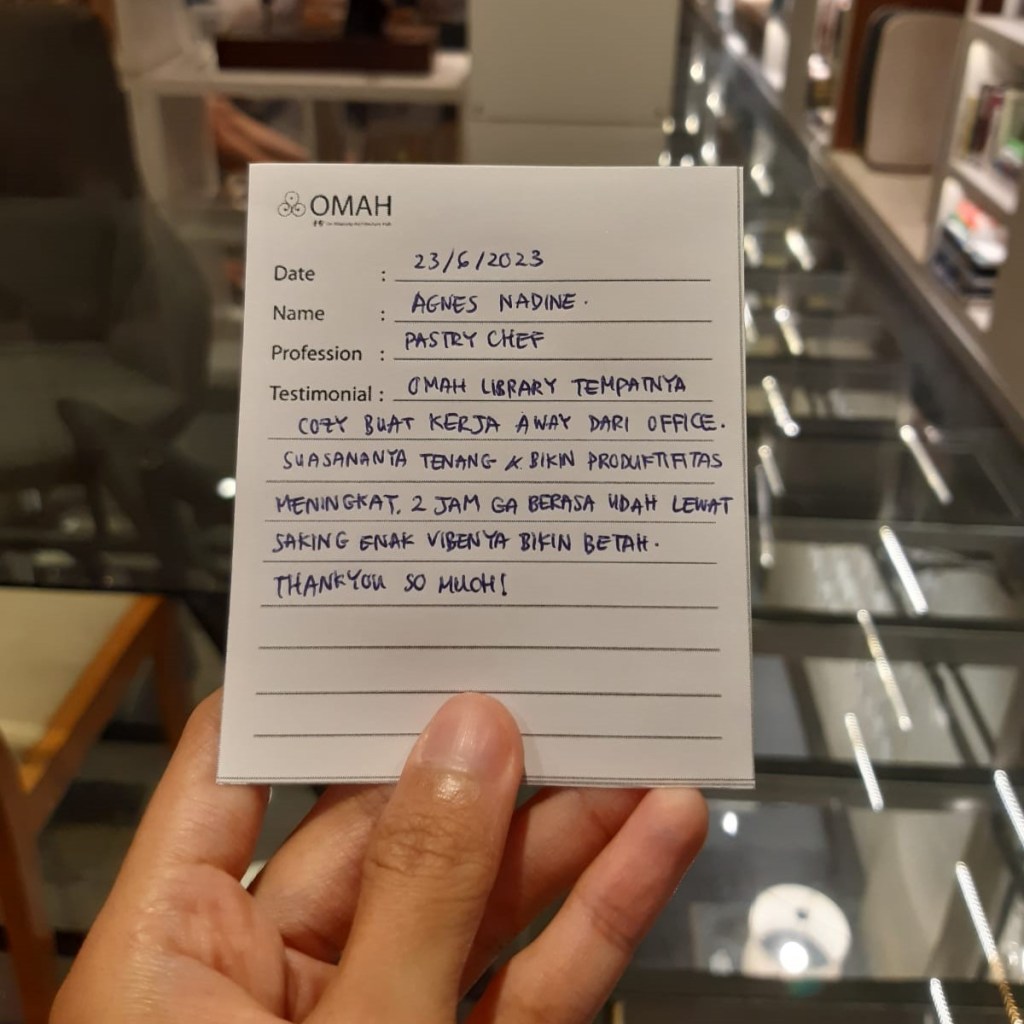 OMAH
Date : 23/6/2023
Name : AGNES NADINE.
Profession : PASTRY CHEF
Testimonial : OMAH LIBRARY TEMPATNYA
COZY BUAT KERJA AWAY DARI OFFICE.
SUASANANYA TENANG & BIKIN PRODUKTIFITAS
MENINGKAT. 2 JAM GA BERASA UDAH LEWAT
SAKING ENAK VIBENYA BIKIN BETAH.
THANKYOU SO MUCH!